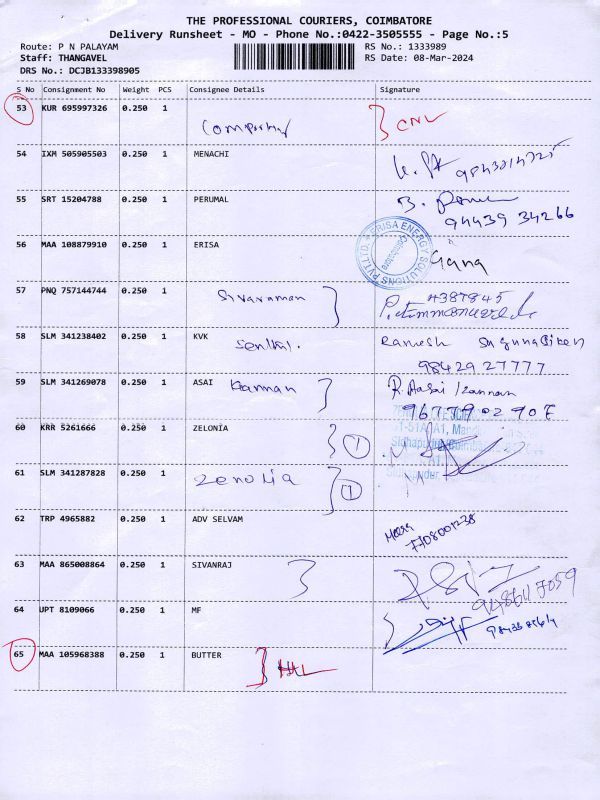 THE PROFESSIONAL COURIERS, COIMBATORE
Delivery Runsheet - MO - Phone No.:0422-3505555 - Page No.:5
Route: P N PALAYAM RS No.: 1333989
Staff: THANGAVEL RS Date: 08-Mar-2024
DRS No.: DCJB133398905
S No Consignment No Weight PCS Consignee Details Signature
53 KUR 695997326 0.250 1 Company CNL
54 IXM 505905503 0.250 1 MENACHI
55 SRT 15204788 0.250 1 PERUMAL
94439 34266
56 MAA 108879910 0.250 1 ERISA
ERISA ENERGY SOLUTIONS PVT LTD
57 PNQ 757144744 0.250 1 Sivaraman
58 SLM 341238402 0.250 1 KVK Ramesh
Senthil.
98429 27777
59 SLM 341269078 0.250 1 ASAI Kannan R. Aasai Kannan
96779 02907
60 KRR 5261666 0.250 1 ZELONIA 1
61 SLM 341287828 0.250 1 Zenolia 1
62 TRP 4965882 0.250 1 ADV SELVAM
7708001238
63 MAA 865008864 0.250 1 SIVANRAJ
64 UPT 8109066 0.250 1 MF
65 MAA 105968388 0.250 1 BUTTER